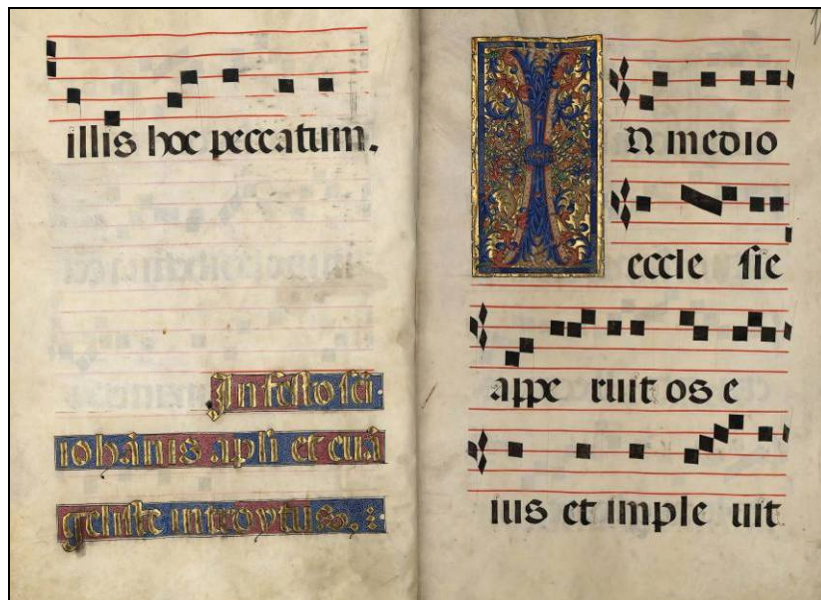 illis hoc peccatum.
In festo sci
iohānis apli et euā
geliste introytus.
IN medio
eccle sie
appe ruit os e
ius et imple uit